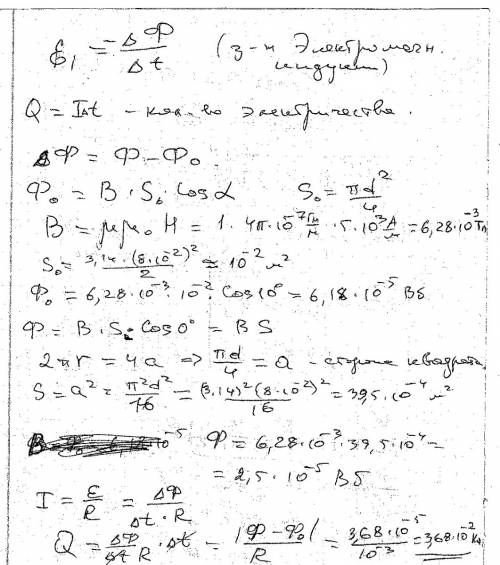 ℰ₁ = -ΔΦ/Δt (з-н Электромагн. индукт)
Q = IΔt - кол-во электричества.
ΔΦ = Φ-Φ₀
Φ₀ = B·S₀·cosα S₀ = πd²/4
B = μμ₀H = 1·4π·10⁻⁷ Гн/м · 5·10³ А/м = 6,28·10⁻³ Тл
S₀ = 3,14·(8·10⁻²)²/2 ≈ 10⁻² м²
Φ₀ = 6,28·10⁻³·10⁻²·cos10° = 6,18·10⁻⁵ Вб
Φ = B·S·cos0° = BS
2πr = 4a => πd/4 = a - сторона квадрата
S = a² = π²d²/16 = (3,14)²(8·10⁻²)²/16 = 39,5·10⁻⁴ м²
Φ = 6,28·10⁻³·39,5·10⁻⁴ =
= 2,5·10⁻⁵ Вб
I = ℰ/R = ΔΦ/Δt·R
Q = ΔΦ/ΔtR · Δt = |Φ-Φ₀|/R = 3,68·10⁻⁵/10⁻³ = 3,68·10⁻² Кл